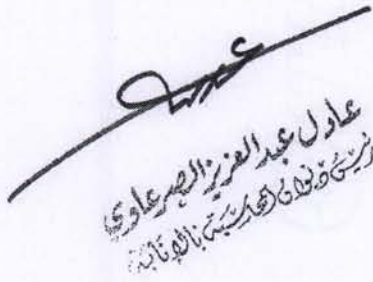 عادل عبدالعزيز الصرعاوي
رئيس ديوان المحاسبة بالإنابة